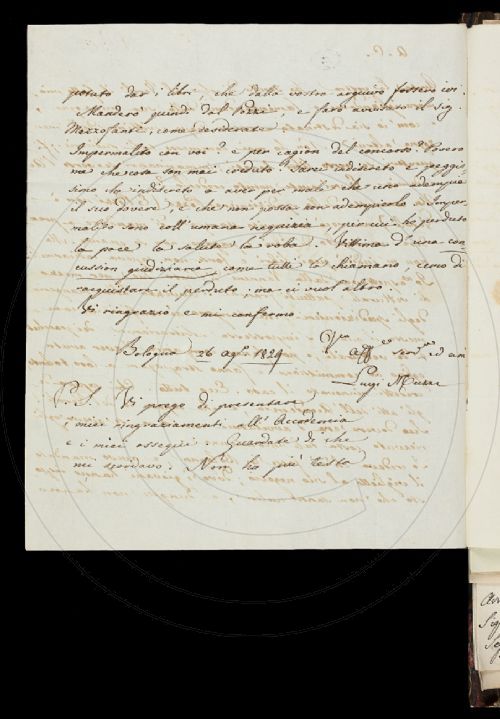 potuto dar i libri, che dalla vostra acquirò fossero ivi.
Manderò quindi dal Pozzi, e farò avvisato il Sig.
Mezzofanti, come desiderate.
Impermalito con voi? e per cagion del concorso? Povero
me che cosa son mai creduto! Sarei indiscreto e peggis-
simo che indiscreto a aver per male che uno adempia
il suo dovere e che non possa non adempierlo. Imper-
malito sono coll'umana nequizia, per cui ho perduto
la pace la salute la roba. Vittima d'una con-
cussion giudiziaria come tutti la chiamano, cerco di
racquistare il perduto, ma ci vuol altro.
Vi ringrazio e mi confermo
Bologna 26 ag.º 1829
Vro aff.º serv.re ed am
Luigi
P. S. Vi prego di presentare
i miei ringraziamenti all'Accademia
e i miei ossequi. Guardate di che
mi scordavo. Non ho più testa